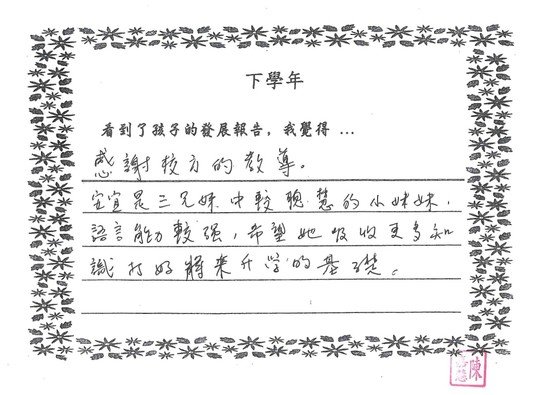 下學年
看到了孩子的發展報告，我覺得 …
感謝校方的教導。
宜宜是三兄妹中較聰慧的小妹妹，
語言能力較强，希望她吸收更多知
識打好將來升学的基礎。
陳